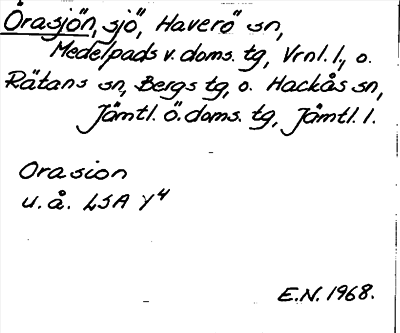 Örasjön, sjö, Haverö sn,
Medelpads v. doms. tg, Vrnl. l., o.
Rätans sn, Bergs tg, o. Hackås sn,
Jämtl. ö. doms. tg, Jämtl. l.
Orasion
u. å. LSA Y4
E.N. 1968.